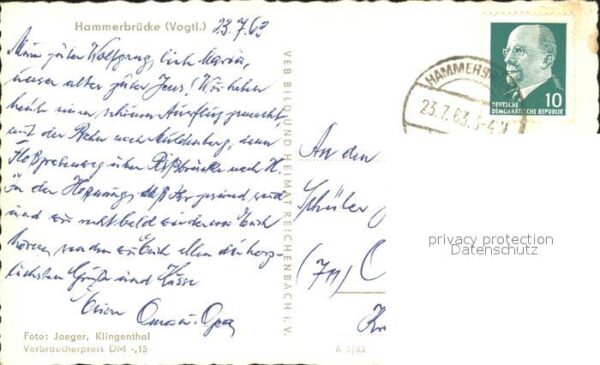 Hammerbrücke (Vogtl.) 23.7.63
Mein guter Wolfgang, liebe Maria,
unser alter guter Jens! Wir haben
heute einen schönen Ausflug gemacht,
mit der Bahn nach Muldenberg, dann
über Rißbrücke nach H.
In der Hoffnung, daß Ihr gesund seid
und wir recht bald wieder von Euch
hören, senden wir Euch allen die herz-
lichsten Grüße und Küsse
Eure
Omi u. Opa
Foto: Jaeger, Klingenthal
Verbraucherpreis DM -,15
VEB BILD UND HEIMAT REICHENBACH i. V.
A 3/63
HAMMER
23.7.63
10
DEUTSCHE
DEMOKRATISCHE REPUBLIK
An den
Schüler
(711)
privacy protection
Datenschutz